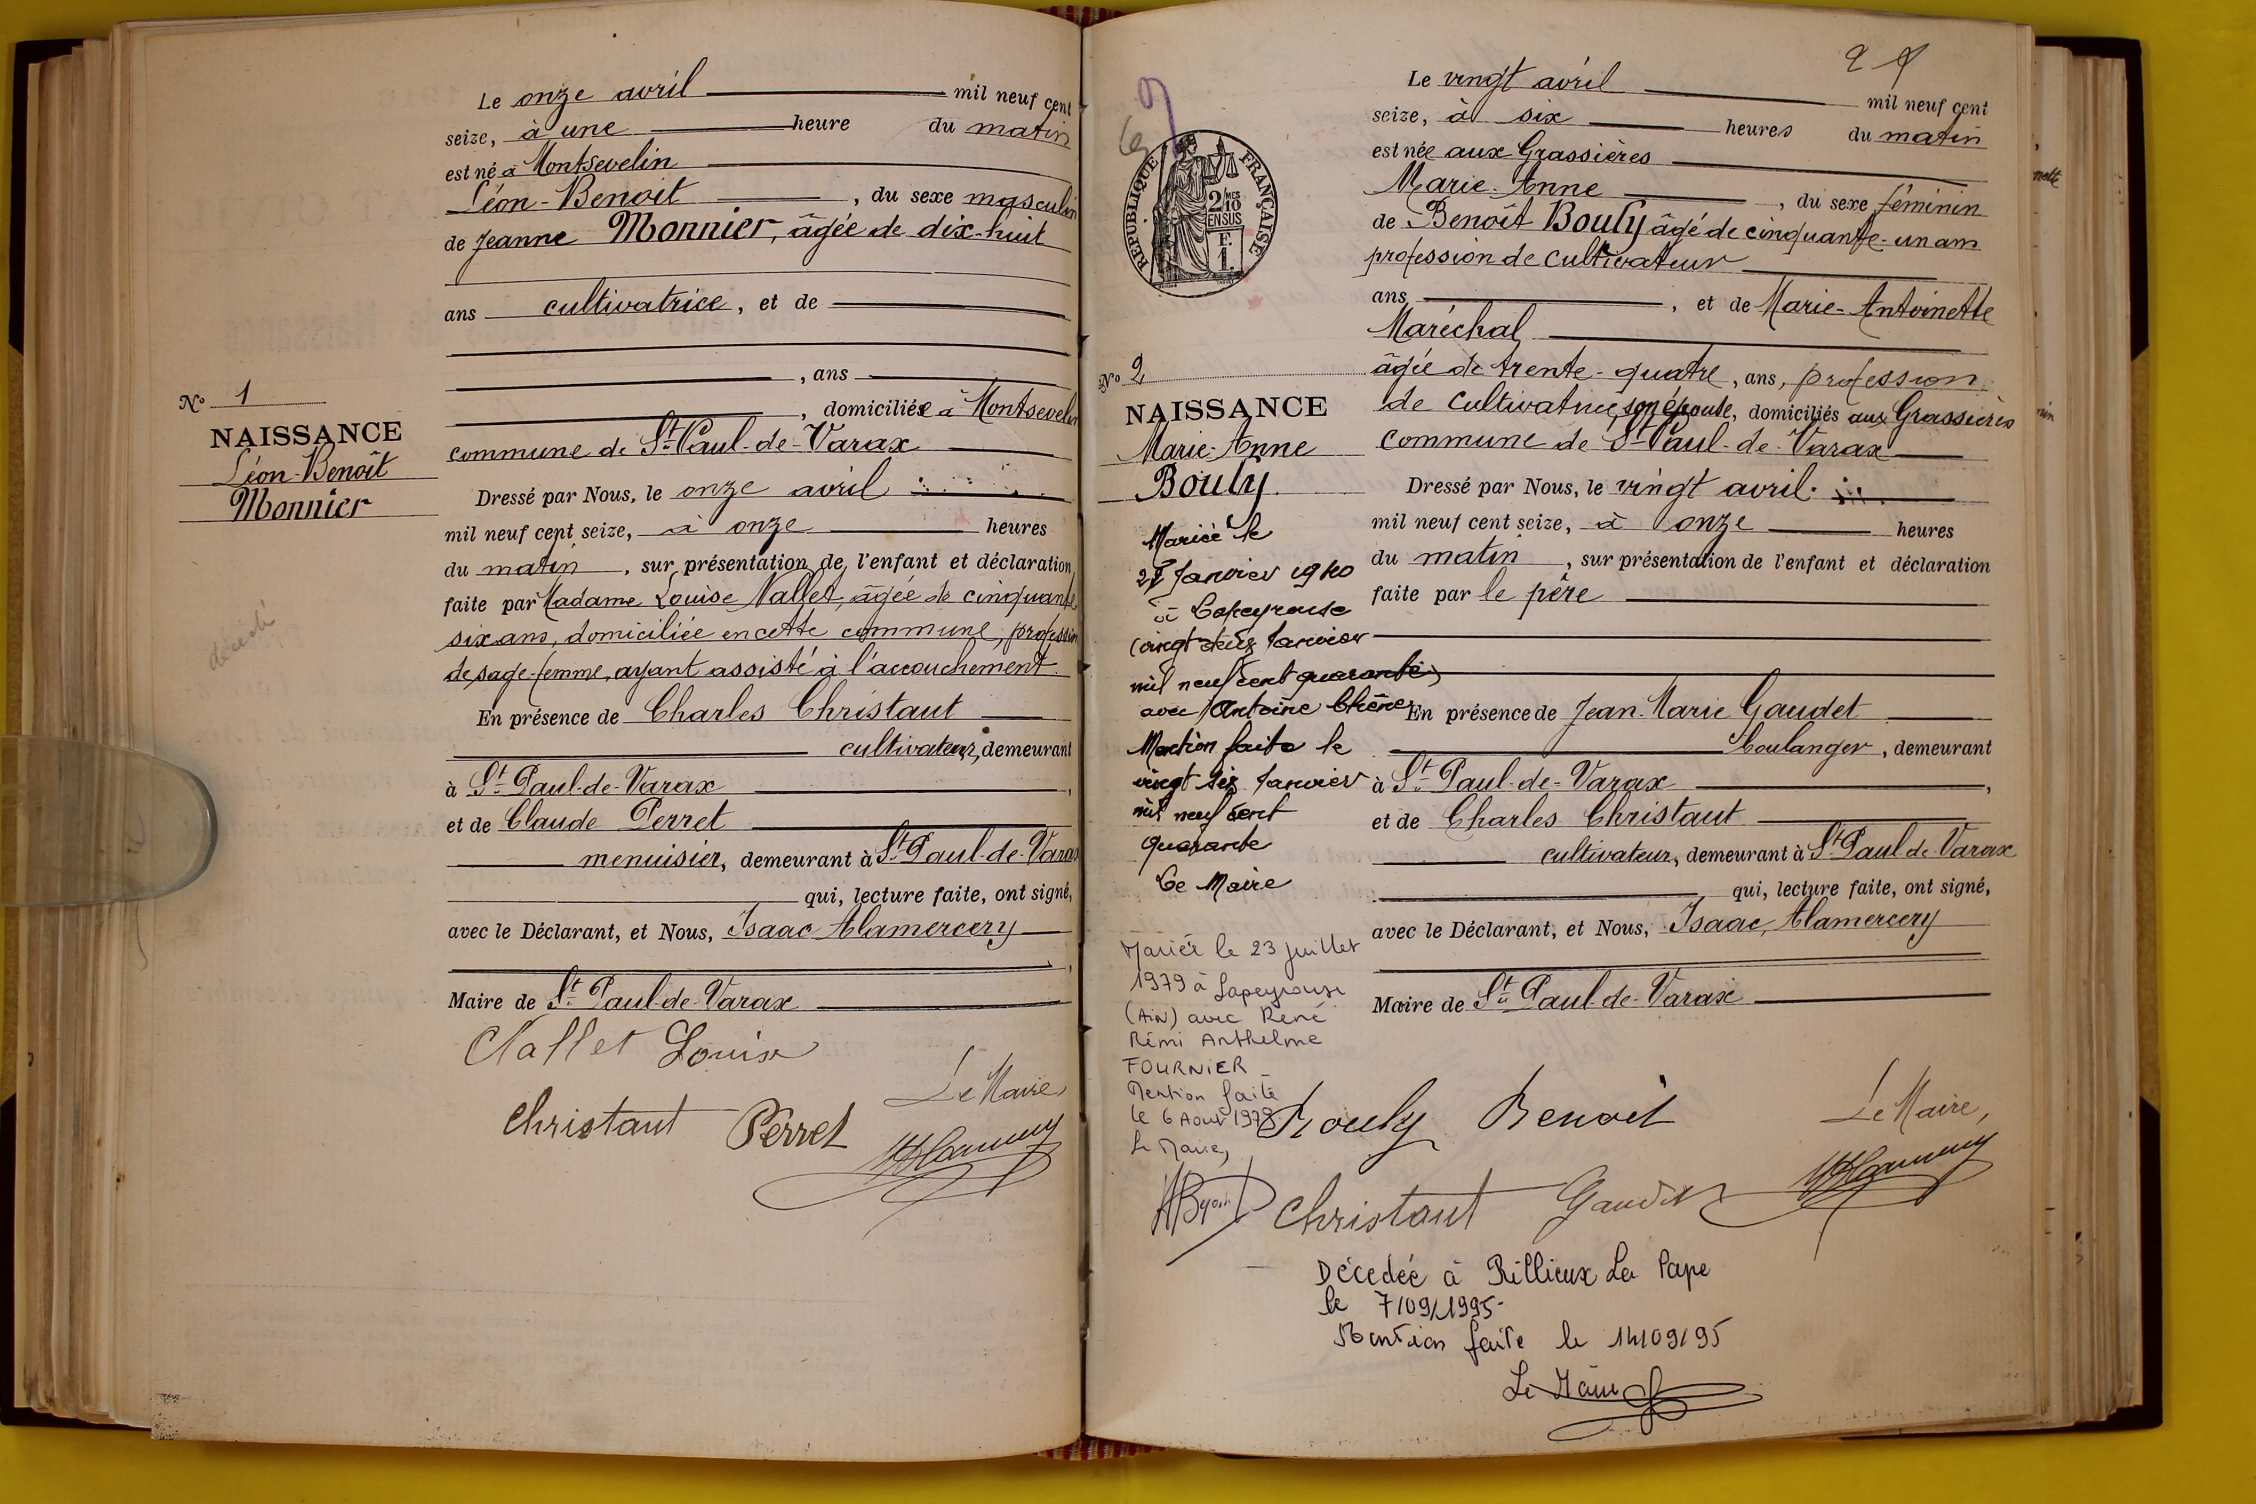 Le onze avril mil neuf cent
seize, à une heure du matin
est né à Montsevelin
Léon-Benoît, du sexe masculin
de Jeanne Monnier, âgée de dix-huit
ans cultivatrice, et de
, ans
, domiciliée à Montsevelin
commune de St Paul-de-Varax
Dressé par Nous, le onze avril
mil neuf cent seize, à onze heures
du matin, sur présentation de l'enfant et déclaration
faite par Madame Louise Nallet, âgée de cinquante
six ans, domiciliée en cette commune, profession
de sage-femme, ayant assisté à l'accouchement.
En présence de Charles Christaut
cultivateur, demeurant
à St Paul-de-Varax,
et de Claude Perret
menuisier, demeurant à St Paul-de-Varax
qui, lecture faite, ont signé,
avec le Déclarant, et Nous, Isaac Alamercery
Maire de St Paul-de-Varax
Nallet Louise
Le Maire,
Christaut Perret
No 1
NAISSANCE
Léon-Benoît
Monnier
décédé
2
Le vingt avril mil neuf cent
seize, à six heures du matin
est née aux Grassières
Marie-Anne, du sexe féminin
de Benoît Bouly âgé de cinquante-un ans
profession de cultivateur
ans, et de Marie-Antoinette
Maréchal
âgée de trente-quatre, ans, profession
de cultivatrice, son épouse, domiciliés aux Grassières
commune de St Paul-de-Varax
Dressé par Nous, le vingt avril
mil neuf cent seize, à onze heures
du matin, sur présentation de l'enfant et déclaration
faite par le père
En présence de Jean-Marie Gaudet
boulanger, demeurant
à St Paul-de-Varax,
et de Charles Christaut
cultivateur, demeurant à St Paul-de-Varax
qui, lecture faite, ont signé,
avec le Déclarant, et Nous, Isaac Alamercery
Maire de St Paul-de-Varax
Bouly Benoit
Le Maire,
Christaut Gaudet
Décedée à Rillieux La Pape
le 7/09/1995-
Mention faite le 14/09/95
Le Maire
RÉPUBLIQUE FRANÇAISE
2/10
EN SUS
F.
1.
No 2
NAISSANCE
Marie-Anne
Bouly
Mariée le
Janvier 1940
à Lapeyrouse
(vingt deux Janvier
mil neuf cent quarante)
avec Antoine Chêne
Mention faite le
vingt six Janvier
mil neuf cent
quarante
Le Maire
Mariée le 23 juillet
1979 à Lapeyrouse
(Ain) avec René
Rémi Anthelme
FOURNIER -
Mention faite
le 6 Aout 1979
Le Maire,